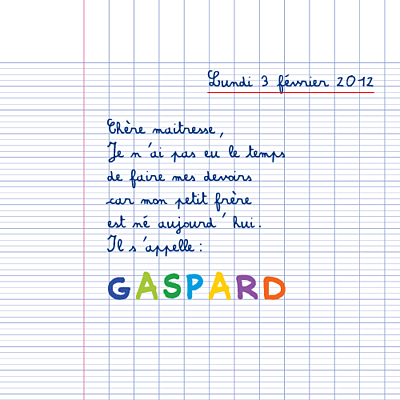 Lundi 3 février 2012
Chère maitresse,
Je n'ai pas eu le temps
de faire mes devoirs
car mon petit frère
est né aujourd'hui.
Il s'appelle :
GASPARD